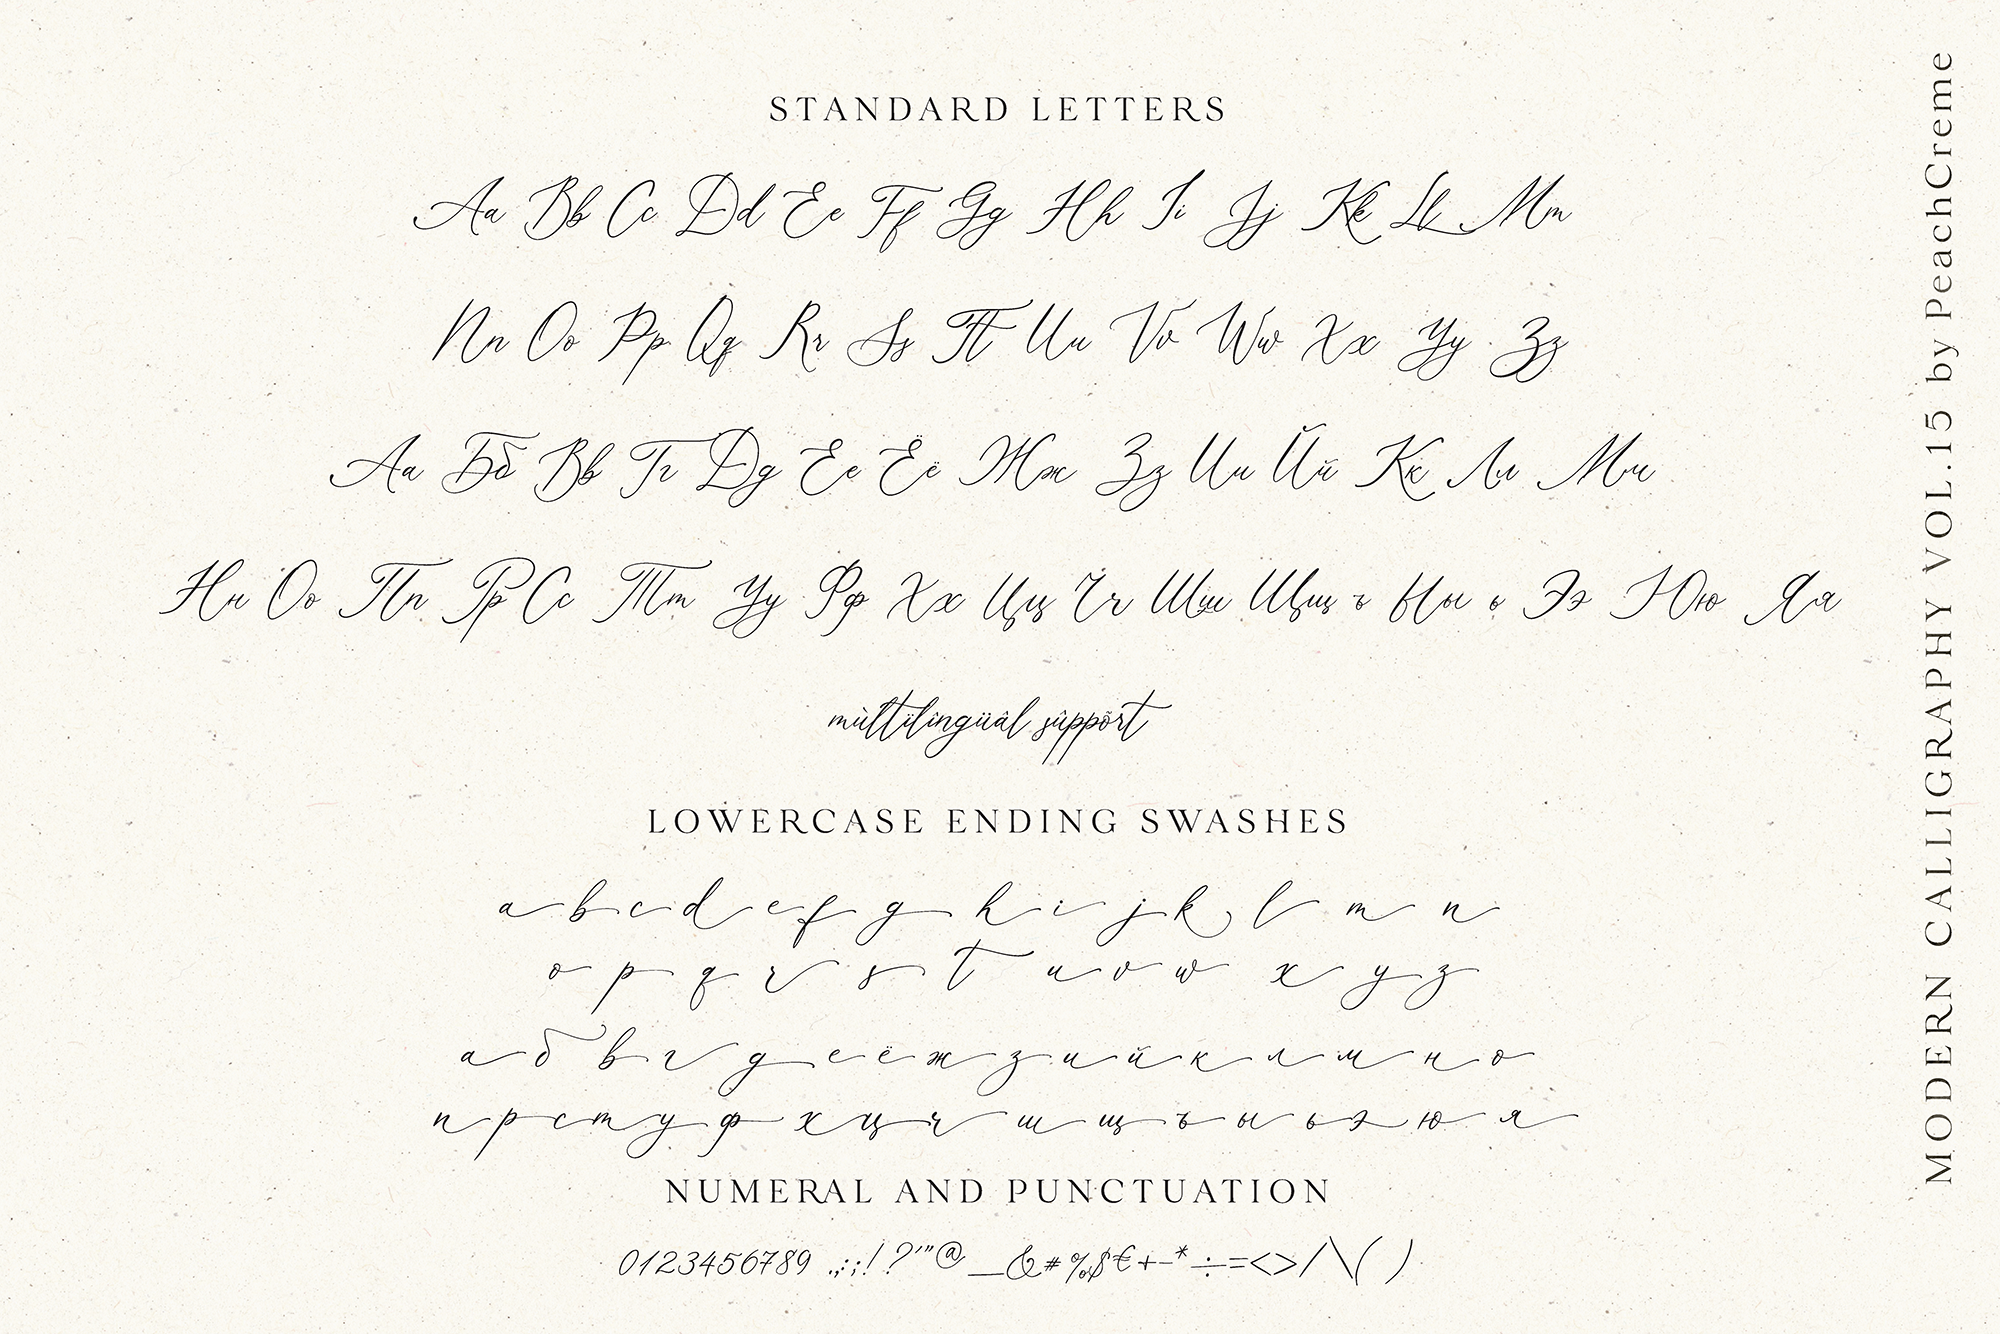 STANDARD LETTERS
Aa Bb Cc Dd Ee Ff Gg Hh Ii Jj Kk Ll Mm
Nn Oo Pp Qq Rr Ss Tt Uu Vv Ww Xx Yy Zz
Аа Бб Вв Гг Дд Ее Ёё Жж Зз Ии Йй Кк Лл Мм
Нн Оо Пп Рр Сс Тт Уу Фф Хх Цц Чч Шш Щщ ъ Ыы ь Ээ Юю Яя
mùltïlîngüâl sûppõrt
LOWERCASE ENDING SWASHES
a b c d e f g h i j k l m n
o p q r s t u v w x y z
а б в г д е ё ж з и й к л м н о
п р с т у ф х ц ч ш щ ъ ы ь э ю я
NUMERAL AND PUNCTUATION
0123456789 .,:;!?'"@_&#%$€+-*÷=<>/\()
MODERN CALLIGRAPHY VOL.15 by PeachCreme